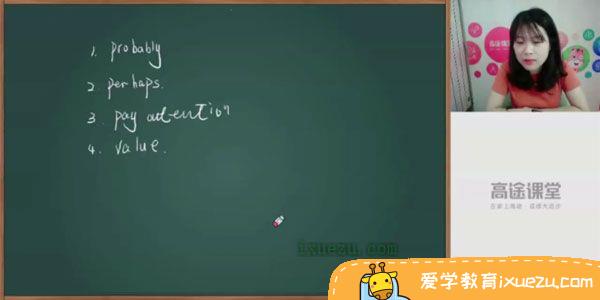 1. probably
2. perhaps.
3. pay attention
4. value.
ixuezu.com
高途课堂
高途课堂
在家上高途·成绩大进步
爱学教育ixuezu.com